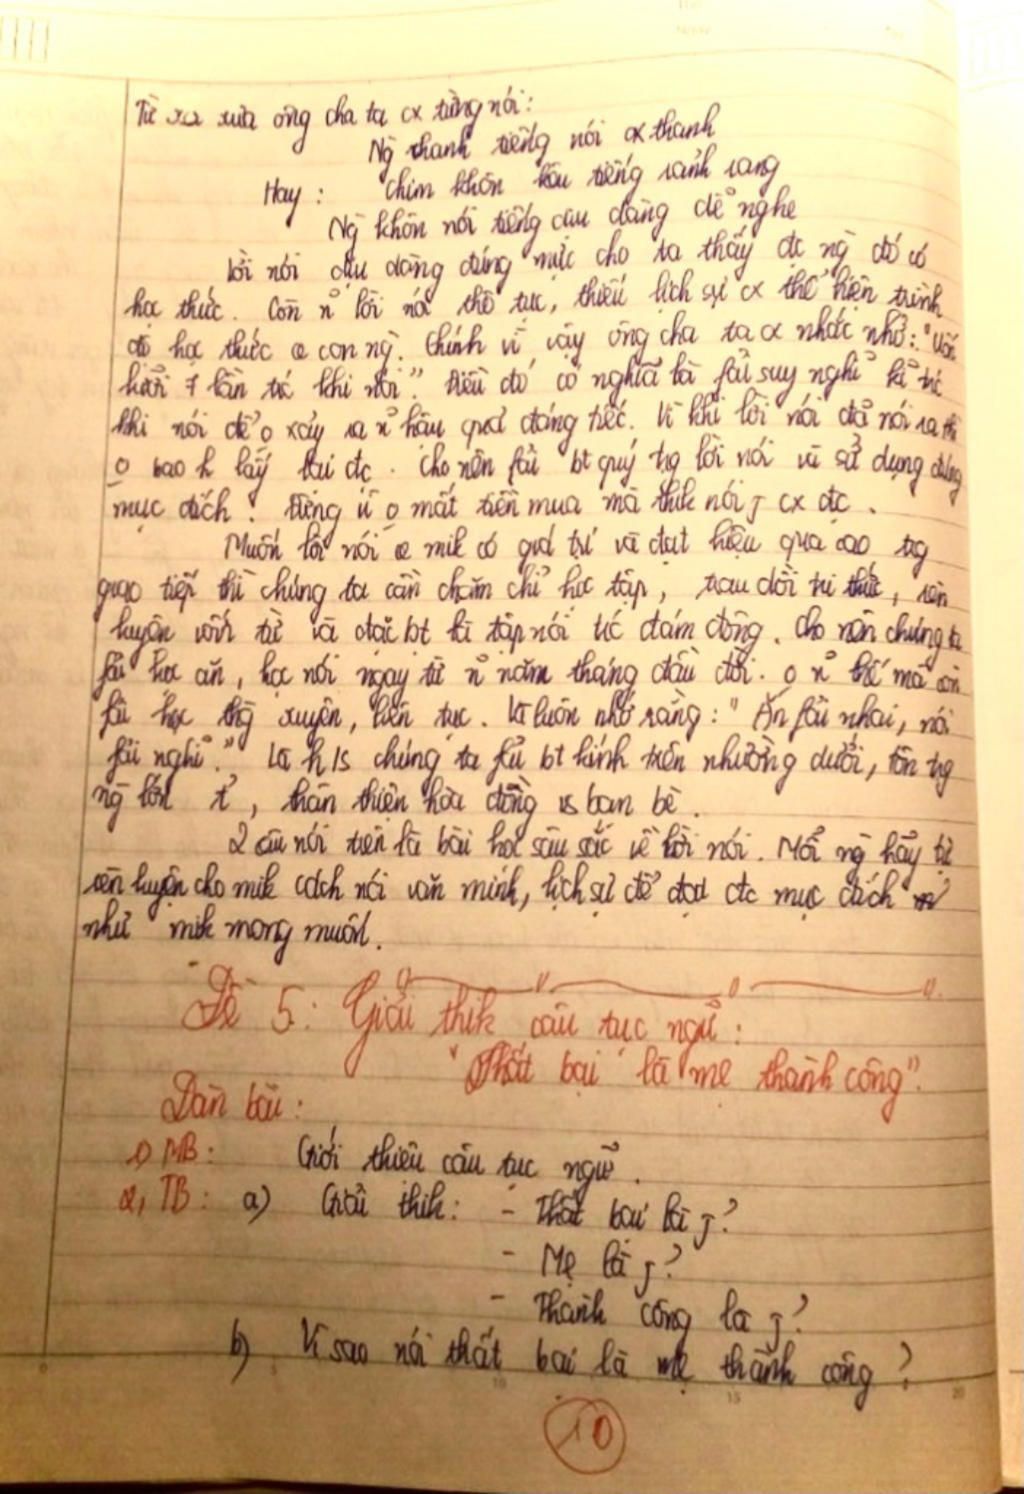 Từ xa xưa ông cha ta cx từng nói:
Ng` thanh tiếng nói cx thanh
Hay : Chim khôn kêu tiếng rảnh rang
Ng` khôn nói tiếng dịu dàng dễ nghe
Lời nói dịu dàng đúng mực cho ta thấy đc ng` đó có
học thức. Còn n~ lời nói thô tục, thiếu lịch sự cx thể hiện trình
độ học thức con ng`. Chính vì vậy ông cha ta cx nhắc nhở: "Uốn
lưỡi 7 lần trc khi nói". Điều đó có nghĩa là fải suy nghĩ kĩ trc
khi nói để o xảy ra n~ hậu quả đáng tiếc. Vì khi lời nói đã nói ra thì
o bao h lấy lại đc. Cho nên fải bt quý trg lời nói và sử dụng đúng
mục đích! Đừng vì o mất tiền mua mà thik nói j cx đc.
Muốn lời nói mik có giá trị và đạt hiệu quả cao trg
giao tiếp thì chúng ta cần chăm chỉ học tập, trau dồi tri thức, rèn
luyện và đặc bt là tập nói trc đám đông. Cho nên chúng ta
fải học ăn, học nói ngay từ n~ năm tháng đầu đời. o n~ thế mà còn
fải học thg xuyên, liên tục. Và luôn nhớ rằng: "Ăn fải nhai, nói
fải nghĩ." Là h/s chúng ta fải bt kính trên nhường dưới, tôn trg
ng` lớn, thân thiện hòa đồng vs bạn bè.
2 câu nói trên là bài học sâu sắc về lời nói. Mỗi ng` hãy tự
rèn luyện cho mik cách nói văn minh, lịch sự để đạt đc mục đích
như mik mong muốn.
Đề 5: Giải thik câu tục ngữ:
"Thất bại là mẹ thành công".
Dàn bài:
1) MB: Giới thiệu câu tục ngữ.
2, TB: a) Giải thik: - Thất bại là j?
- Mẹ là j?
- Thành công là j?
b) Vì sao nói thất bại là mẹ thành công?
0 5 10 15 20
10